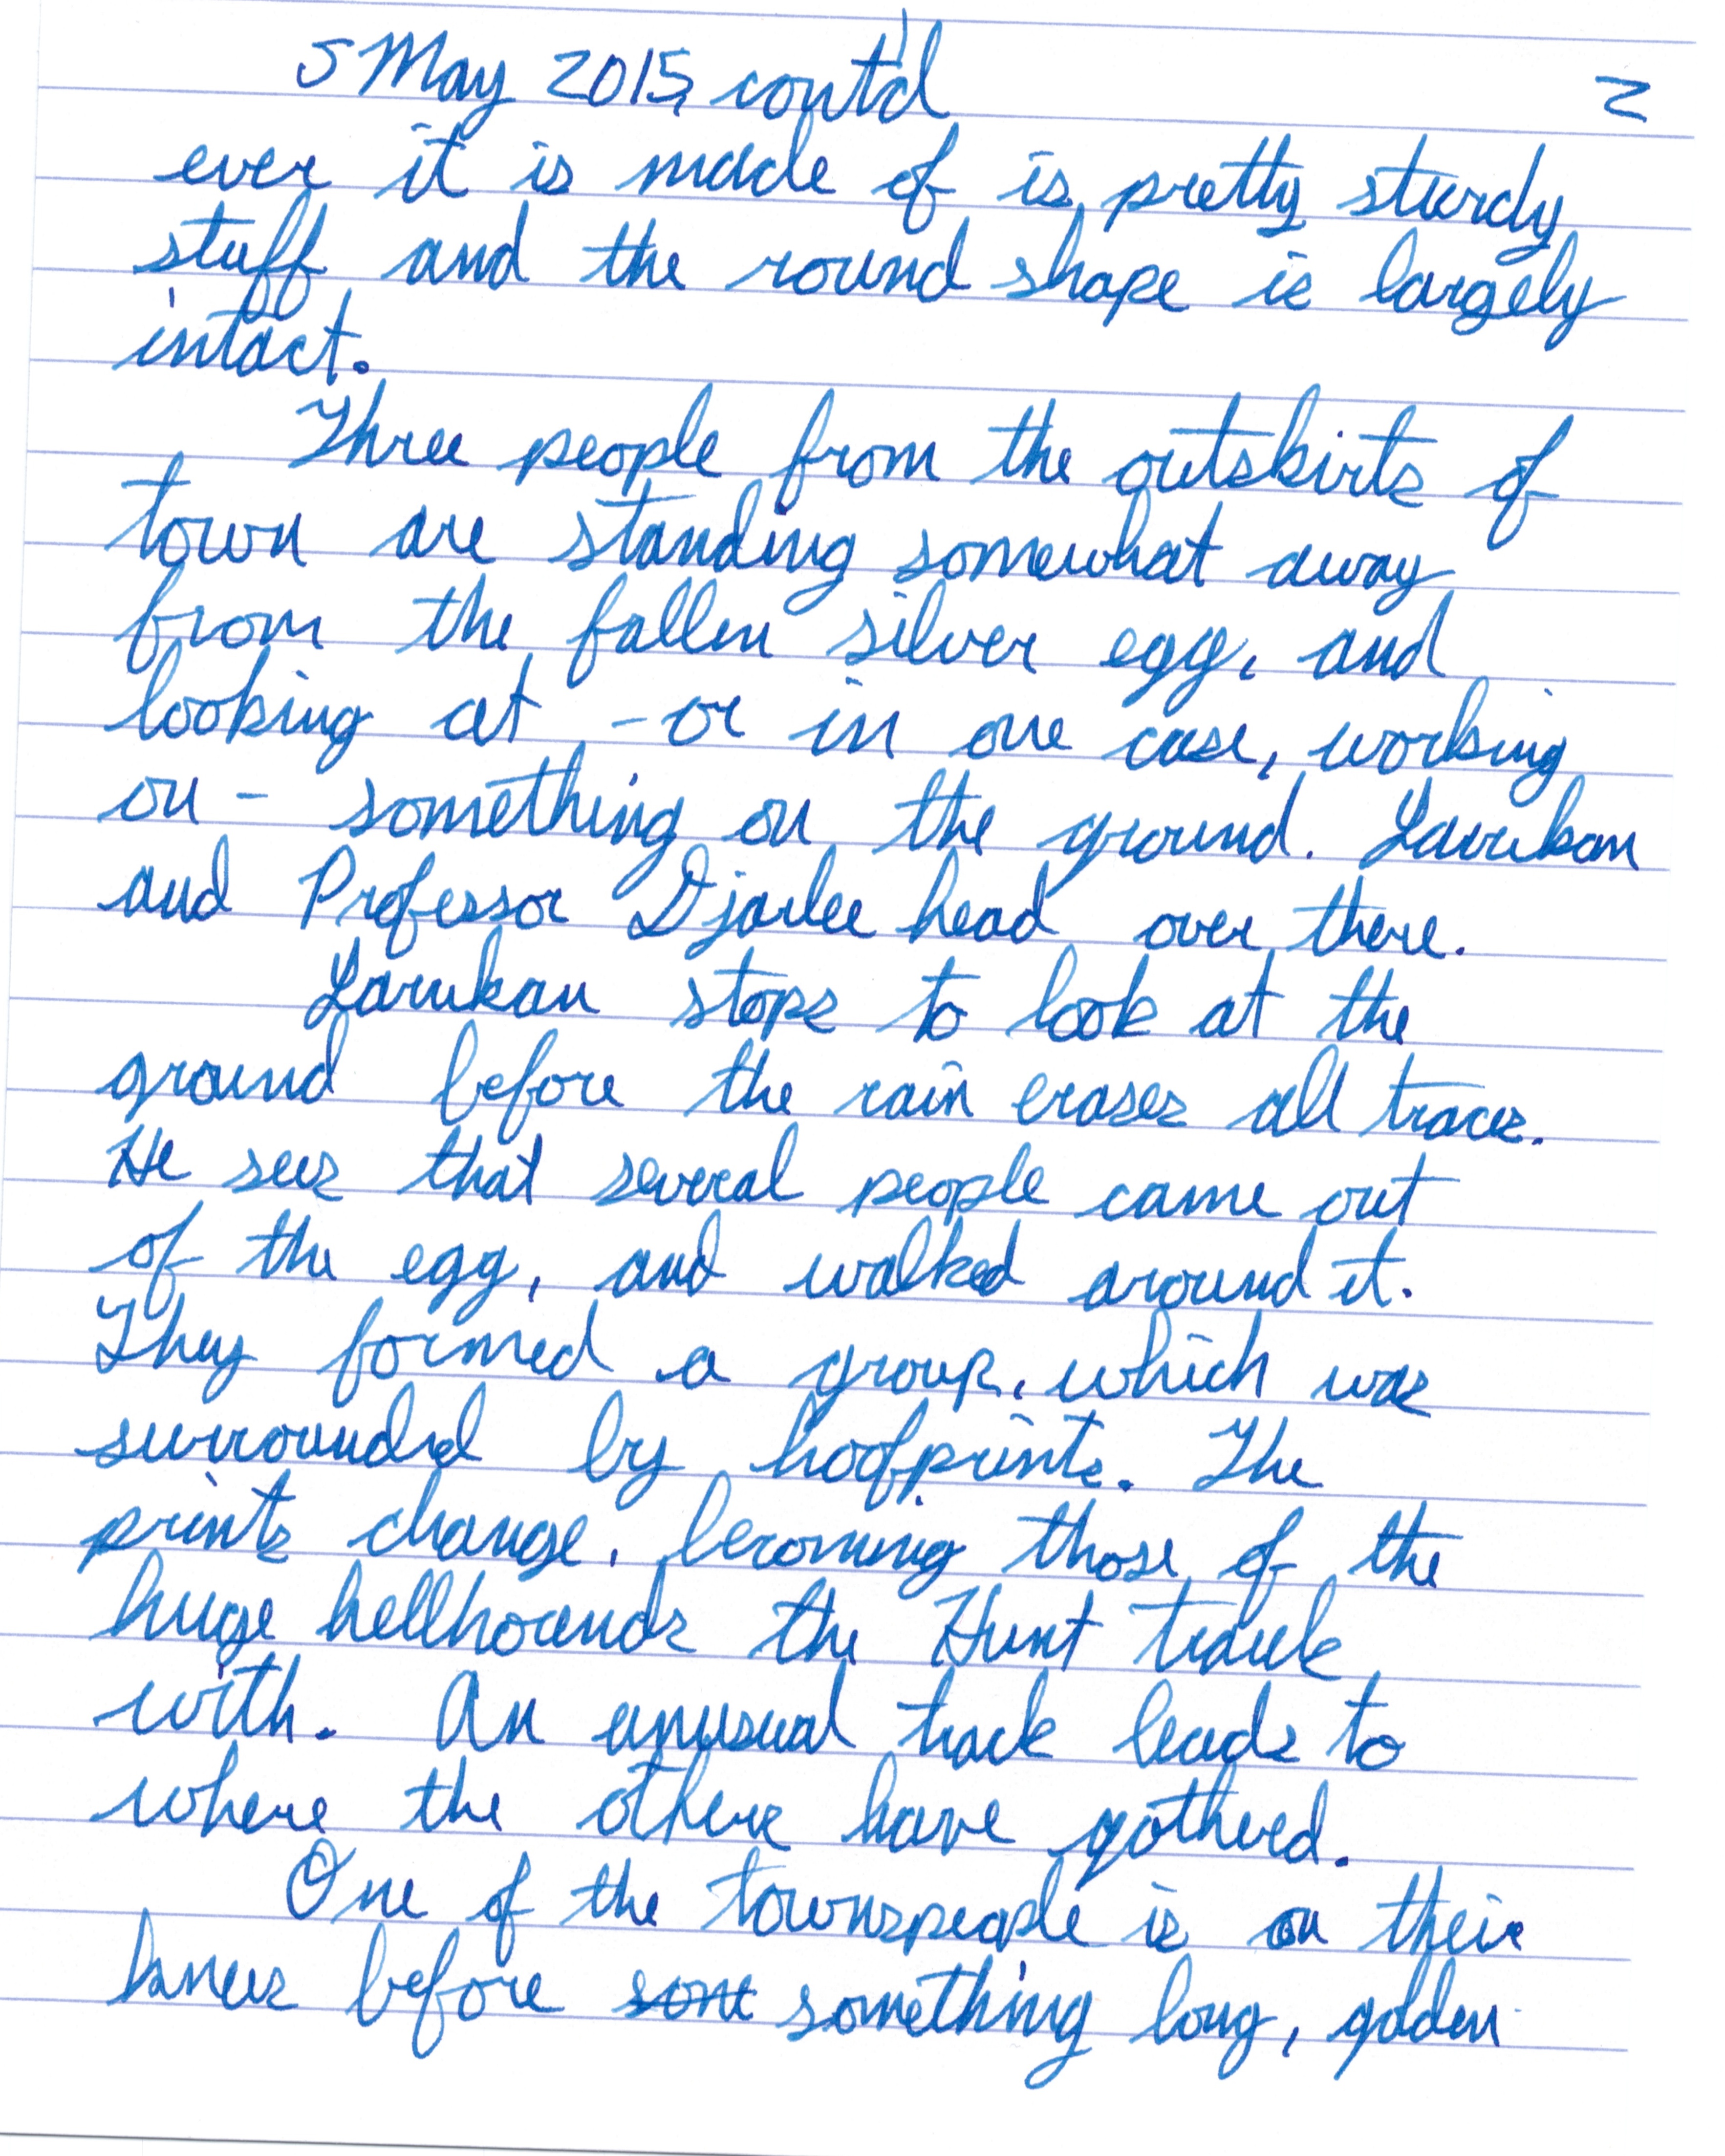 5 May 2015, cont'd 2
ever it is made of is pretty sturdy
stuff and the round shape is largely
intact.
Three people from the outskirts of
town are standing somewhat away
from the fallen silver egg, and
looking at - or in one case, working
on - something on the ground. Larukan
and Professor Djarlee head over there.
Larukan stops to look at the
ground before the rain erases all traces.
He sees that several people came out
of the egg, and walked around it.
They formed a group, which was
surrounded by hoofprints. The
prints change, becoming those of the
huge hellhounds the Hunt travels
with. An unusual track leads to
where the others have gathered.
One of the townspeople is on their
knees before some something long, golden